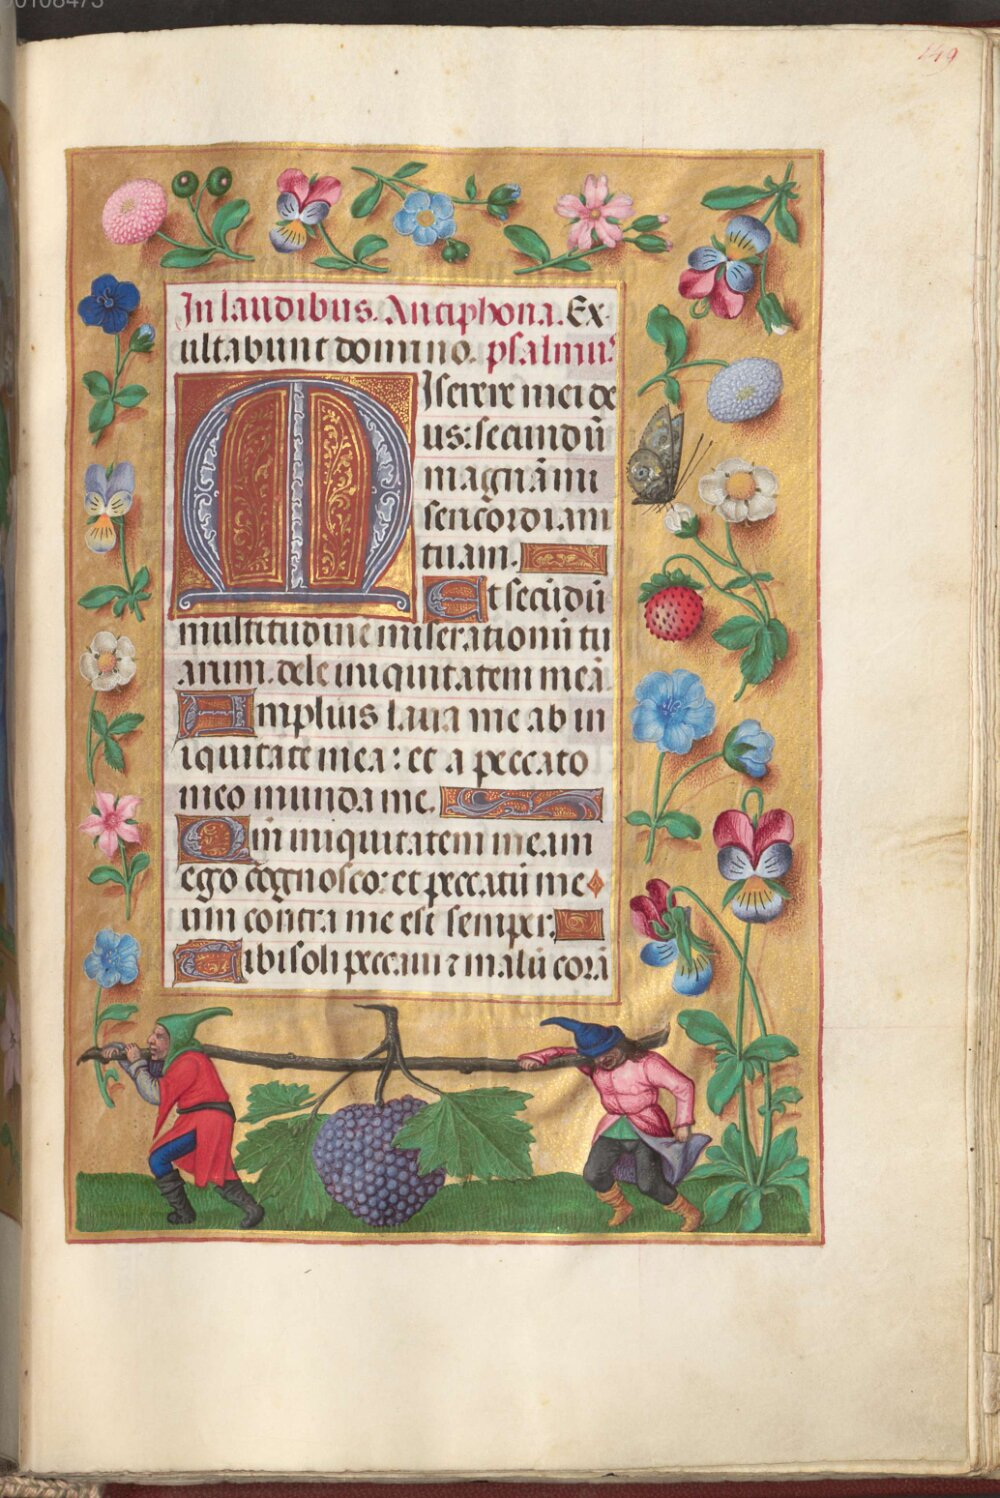 149
In laudibus. Antiphona. Ex-
ultabunt domino. psalmus
Miserere mei de
us: secundū
magnā mi
sericordiam
tuam.
Et secūdū
multitudinē miserationū tu
arum. dele iniquitatem meā.
Amplius laua me ab in
iquitate mea: et a peccato
meo munda me.
Qm̄ iniquitatem meam
ego cōgnosco: et peccatū me
um contra me est semper.
Tibi soli peccaui ⁊ malū corā